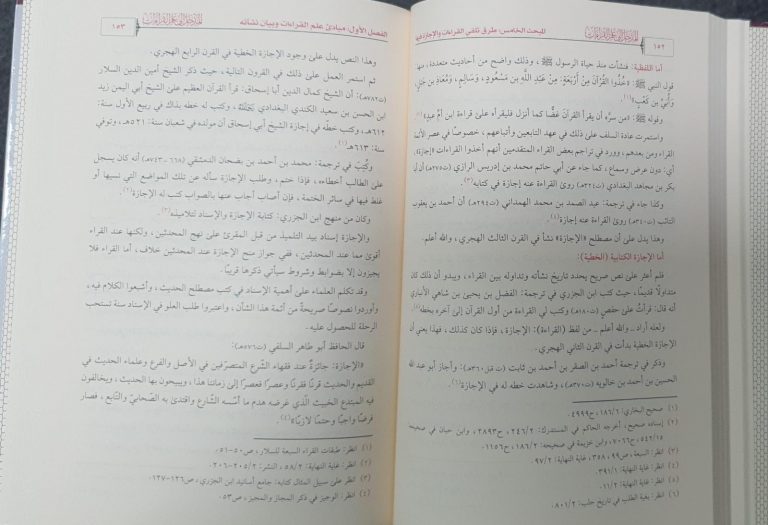 ١٥٢
المبحث الخامس: طرق تلقي القراءات والإجازة فيها
أما اللفظية: فنشأت منذ حياة الرسول ﷺ، وذلك واضح من أحاديث متعددة، منها
قول النبي ﷺ: «خُذُوا القُرْآنَ مِنْ أَرْبَعَةٍ: مِنْ عَبْدِ اللَّهِ بْنِ مَسْعُودٍ، وَسَالِمٍ، وَمُعَاذِ بْنِ جَبَلٍ،
وَأُبَيِّ بْنِ كَعْبٍ»(١).
وقوله ﷺ: «من سرَّه أن يقرأ القرآن غضًّا كما أنزل فليقرأه على قراءة ابن أم عبد»(٢).
واستمرت عادة السلف على ذلك في عهد التابعين وأتباعهم، خصوصًا في عصر الأئمة
القراء ومن بعدهم، وورد في تراجم بعض القراء المتقدمين أنهم أخذوا القراءات «إجازة»،
أي: دون عرض وسماع، كما جاء عن أبي حاتم محمد بن إدريس الرازي (ت٢٧٥هـ) أن أبا
بكر بن مجاهد البغدادي (ت٣٢٤هـ) روى القراءة عنه إجازة في كتابه(٣).
وكذا جاء في ترجمة: عبد الصمد بن محمد الهمداني (ت٢٩٤هـ) أن أحمد بن يعقوب
التائب (ت٣٤٠هـ) روى القراءة عنه إجازة(٤).
وهذا يدل على أن مصطلح «الإجازة» نشأ في القرن الثالث الهجري، والله أعلم.
أما الإجازة الكتابية (الخطية):
فلم أعثر على نص صريح يحدد تاريخ نشأته وتداوله بين القراء، ويبدو أن ذلك كان
متداولًا قديمًا، حيث كتب ابن الجزري في ترجمة: الفضل بن يحيى بن شاهي الأنباري
أنه قال: قرأتُ على حفصٍ (ت١٨٠هـ) وكتب لي القراءة من أول القرآن إلى آخره بخطه(٥).
ولعله أراد ــ والله أعلم ــ من لفظ (القراءة): الإجازة، فإذا كان كذلك، فهذا يعني أن
الإجازة الخطية بدأت في القرن الثاني الهجري.
وذكر في ترجمة أحمد بن الصقر بن أحمد بن ثابت (ت قبل ٣٦٠هـ): وأجاز أبو عبد الله
الحسين بن أحمد بن خالويه (ت٣٧٠هـ)، وشاهدت خطه له في الإجازة(٦).
(١) صحيح البخاري: ١٨٦/٦، ح٤٩٩٩.
(٢) إسناده صحيح، أخرجه الحاكم في المستدرك: ٢٤٦/٢، ح٢٨٩٣، وابن حبان في صحيحه:
٥٤٢/١٥، ح٧٠٦٦، وابن خزيمة في صحيحه: ١٨٦/٢، ح١١٥٦.
(٣) انظر: السبعة، ص٩٩، ٣٥٨، غاية النهاية: ٩٧/٢.
(٤) انظر: غاية النهاية: ٣٩١/١.
(٥) انظر: غاية النهاية: ١١/٢.
(٦) انظر: بغية الطلب في تاريخ حلب: ٨٠١/٢.
الفصل الأول: مبادئ علم القراءات وبيان نشأته
١٥٣
وهذا النص يدل على وجود الإجازة الخطية في القرن الرابع الهجري.
ثم استمر العمل على ذلك في القرون التالية، حيث ذكر الشيخ أمين الدين السلار
(ت٧٨٢هـ): أن الشيخ كمال الدين أبا إسحاق: قرأ القرآن العظيم على الشيخ أبي اليمن زيد
ابن الحسن بن سعيد الكندي البغدادي، وكتب له خطه بذلك في ربيع الأول سنة:
٦١٢هـ، وكتب خطّه في إجازة الشيخ أبي إسحاق أن مولده في شعبان سنة: ٥٢١هـ، وتوفي
سنة: ٦١٣هـ(١).
وكُتِبَ في ترجمة: محمد بن أحمد بن بصخان الدمشقي (٦٦٨-٧٤٣هـ) أنه كان يسجل
على الطالب أخطاءه، فإذا ختم، وطلب الإجازة سأله عن تلك المواضع التي نسيها أو
غلط فيها في سائر الختمة، فإن أصاب أجاب عنها بالصواب كتب له الإجازة(٢).
وكان من منهج ابن الجزري: كتابة الإجازة والإسناد لتلاميذه(٣).
والإجازة إسناد بيد التلميذ من قبل المقرئ على نهج المحدثين، ولكنها عند القراء
أقوى مما عند المحدثين، ففي جواز منح الإجازة عند المحدثين خلاف، أما القراء فلا
يجيزون إلا بضوابط وشروط سيأتي ذكرها قريبًا.
وقد تكلم العلماء على أهمية الإسناد في كتب مصطلح الحديث، وأشبعوا الكلام فيه،
وأوردوا نصوصًا صريحة من أئمة هذا الشأن، واعتبروا طلب العلو في الإسناد سنة تستحب
الرحلة للحصول عليه.
قال الحافظ أبو طاهر السلفي (ت٥٧٦هـ):
«الإجازة: جائزةٌ عند فقهاء الشرع المتصرّفين في الأصل والفرع وعلماء الحديث في
القديم والحديث قرنًا فقرنًا وعصرًا فعصرًا إلى زماننا هذا، ويبيحون بها الحديث، ويخالفون
فيه المبتدع الخبيث الّذي غرضه هدم ما أسّسه الشّارع واقتدى به الصّحابيّ والتّابع، فصار
فرضًا واجبًا وحتمًا لازبًا»(٤).
(١) انظر: طبقات القراء السبعة للسلار، ص٥٠-٥١.
(٢) انظر: غاية النهاية: ٥٨/٢، النشر: ٢٠٥/٢-٢٠٦.
(٣) انظر على سبيل المثال كتابه: جامع أسانيد ابن الجزري، ص١٢٦-١٢٧.
(٤) انظر: الوجيز في ذكر المجاز والمجيز، ص٥٣.